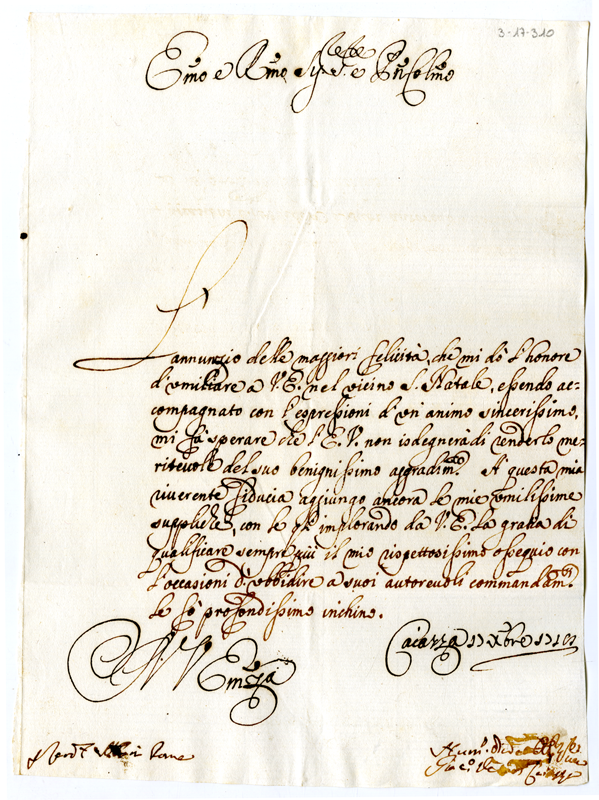 3-17-310
Emo e Rmo Sigre e Pne Colmo
L'annunzio delle maggiori felicità, che mi dò l'honore
d'umiliare a V.E. nel vicino S. Natale, essendo ac=
compagnato con l'espressioni d'un'animo sincerissimo,
mi fà sperare che l'E.V. non isdegnerà di renderlo me=
ritevole del suo benignissimo aggradimto. A questa mia
riverente fiducia aggiungo ancora le mie umilissime
suppliche, con le qli implorando da V.E. la grazia di
qualificare sempre più il mio rispettosissimo ossequio con
l'occasioni d'obbidire a suoi autorevoli commandamti
le fò profondissimo inchino.
Xbre
Di V. Emza
Hum.